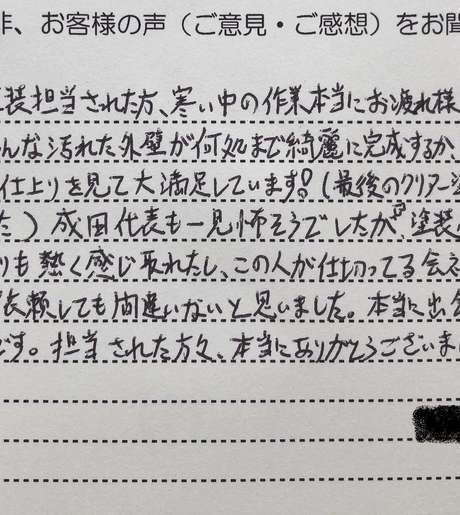 非、お客様の声（ご意見・ご感想）をお聞
装担当された方、寒い中の作業本当にお疲れ様
んな汚れた外壁が何処まで綺麗に完成するか、
仕上りを見て大満足しています!(最後のクリアー塗
た）成田代表も一見怖そうでしたが、塗装
りも熱く感じ取れたし、この人が仕切ってる会社
依頼しても間違いないと思いました。本当に出会
です。担当された方々、本当にありがとうございま